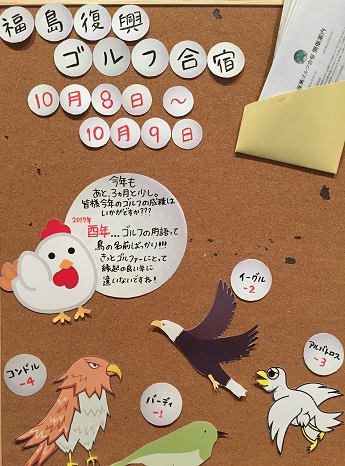 福島復興
ゴルフ合宿
10月8日～
10月9日
今年も
あと、3ヵ月と少し。
皆様今年のゴルフの成績は
いかがですか???
2017年
酉年...ゴルフの用語って
鳥の名前ばっかり!!!
きっとゴルファーにとって
縁起の良い年に
違いないですね!
イーグル
-2
アルバトロス
-3
コンドル
-4
バーディ
-1